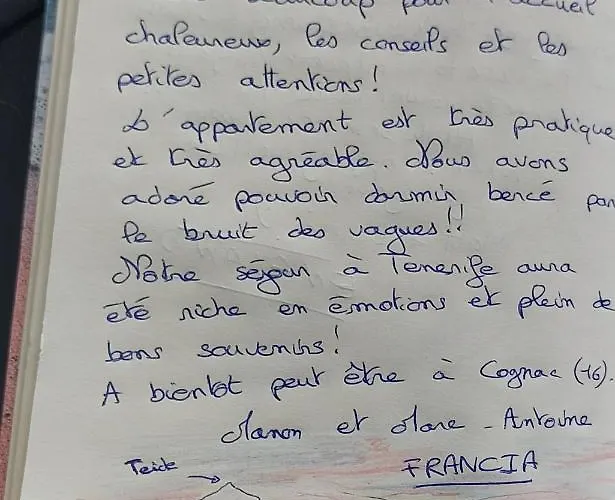 beaucoup pour l'accueil
chaleureux, les conseils et les
petites attentions!
L'appartement est très pratique
et très agréable. Nous avons
adoré pouvoir dormir bercé par
le bruit des vagues!!
Notre séjour à Tenerife aura
été riche en émotions et plein de
bons souvenirs!
A bientot peut être à Cognac (16).
Manon et Marc-Antoine
FRANCIA
Teide